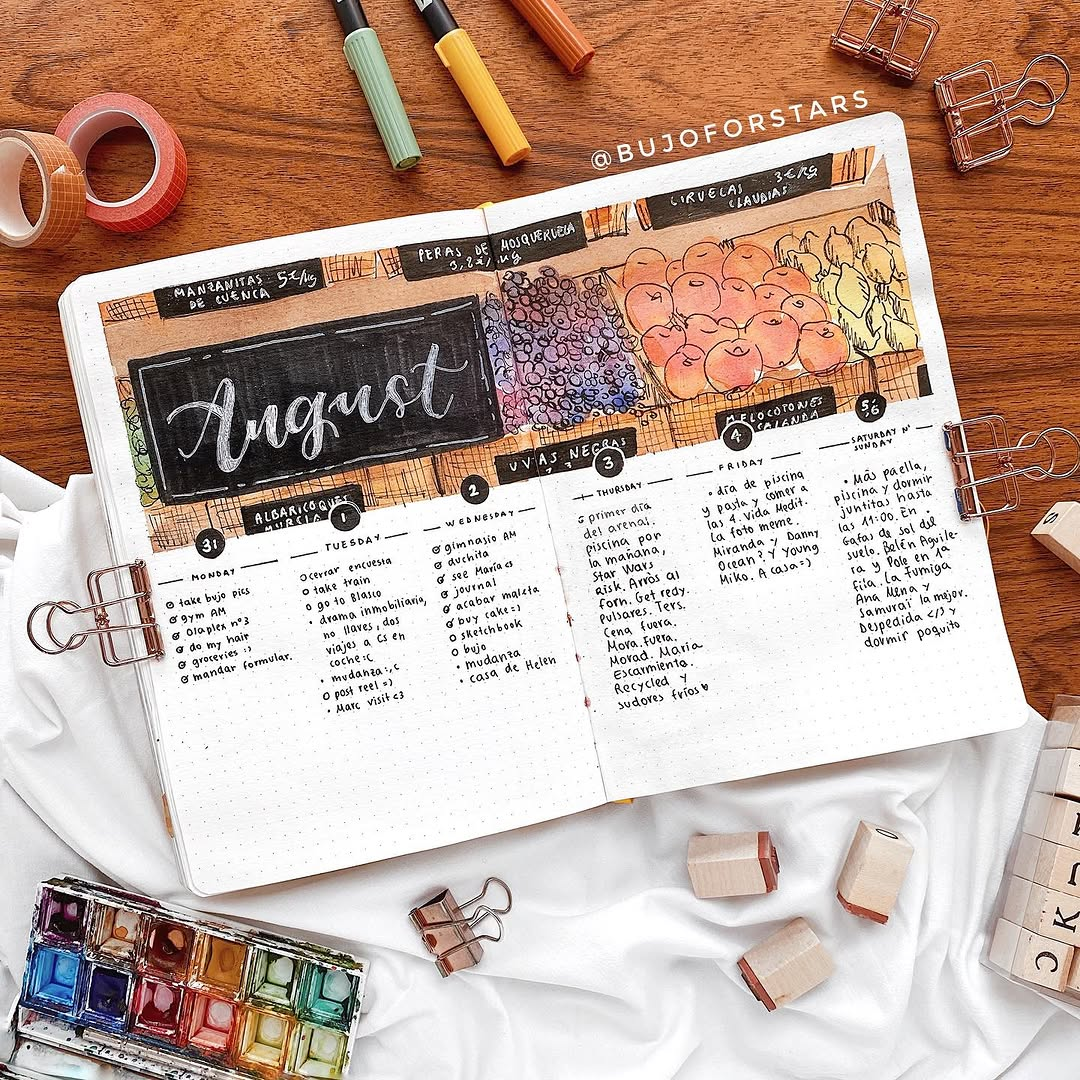 @BUJOFORSTARS
MANZANITAS 5€/kg
DE CUENCA
PERAS DE MOSQUERUELA
CIRUELAS 3€/kg
CLAUDIAS
August
ALBARICOQUES
MURCIA
UVAS NEGRAS
MELOCOTONES
CALANDA
31
MONDAY
take bujo pics
gym AM
Olaplex nº3
do my hair
groceries :)
mandar formular.
1
TUESDAY
cerrar encuesta
take train
go to Blasco
• drama inmobiliaria,
no llaves, dos
viajes a Cs en
coche :C
• mudanza :,c
post reel =)
• Marc visit <3
2
WEDNESDAY
gimnasio AM
duchita
see María <3
journal
acabar maleta
buy cake =)
sketchbook
bujo
• mudanza
• casa de Helen
3
THURSDAY
primer día
del arenal.
piscina por
la mañana,
Star Wars
Risk. Arròs al
forn. Get redy.
Pulsares. Ters.
Cena fuera.
Mora. Fuera.
Morad. María
Escarmiento.
Recycled y
sudores fríos
4
FRIDAY
• día de piscina
y pasta y comer a
las 4. Vida Medit.
La foto meme.
Miranda y Danny
Ocean? Y Young
Miko. A casa =)
5-6
SATURDAY N'
SUNDAY
• Más paella,
piscina y dormir
juntitas hasta
las 11:00. En
Gafas de sol del
suelo. Belén Aguile-
ra y Pole en 1ª
fila. La fumiga
Ana Mena y
samurai la major.
Despedida </3 y
dormir poquito
S
O
K
C